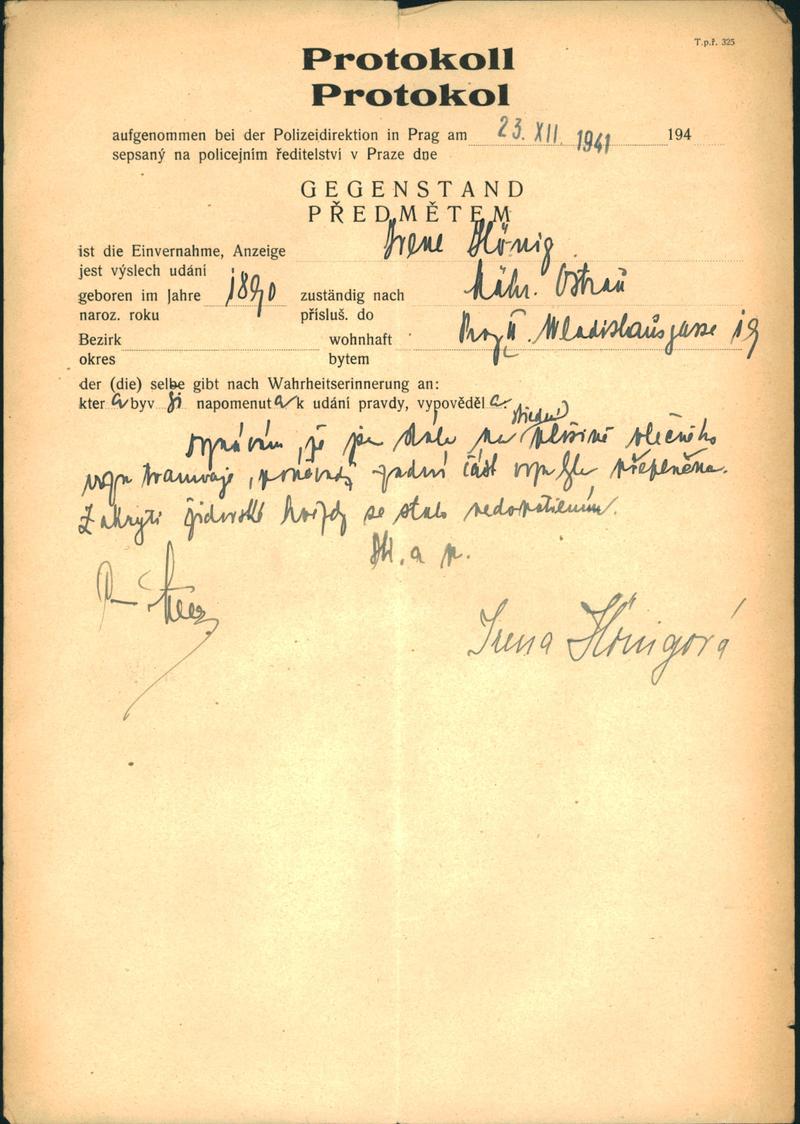 T.p.ř. 325
Protokoll
Protokol
aufgenommen bei der Polizeidirektion in Prag am 23. XII. 1941 194
sepsaný na policejním ředitelství v Praze dne
GEGENSTAND
PŘEDMĚTEM
ist die Einvernahme, Anzeige Irene Hönig
jest výslech udání
geboren im Jahre 1890 zuständig nach Mähr. Ostrau
naroz. roku přísluš. do
Bezirk wohnhaft Prag II. Wladislausgasse 19
okres bytem
der (die) selbe gibt nach Wahrheitserinnerung an:
kter á byv ši napomenut a k udání pravdy, vypověděl a:
střední
Doznávám, že jsem stála na plošině vlečného
vozu tramvaje, poněvadž zadní část vozu byla přeplněna.
Zakrytí židovské hvězdy se stalo nedopatřením.
Sk. a p.
Irena Hönigová